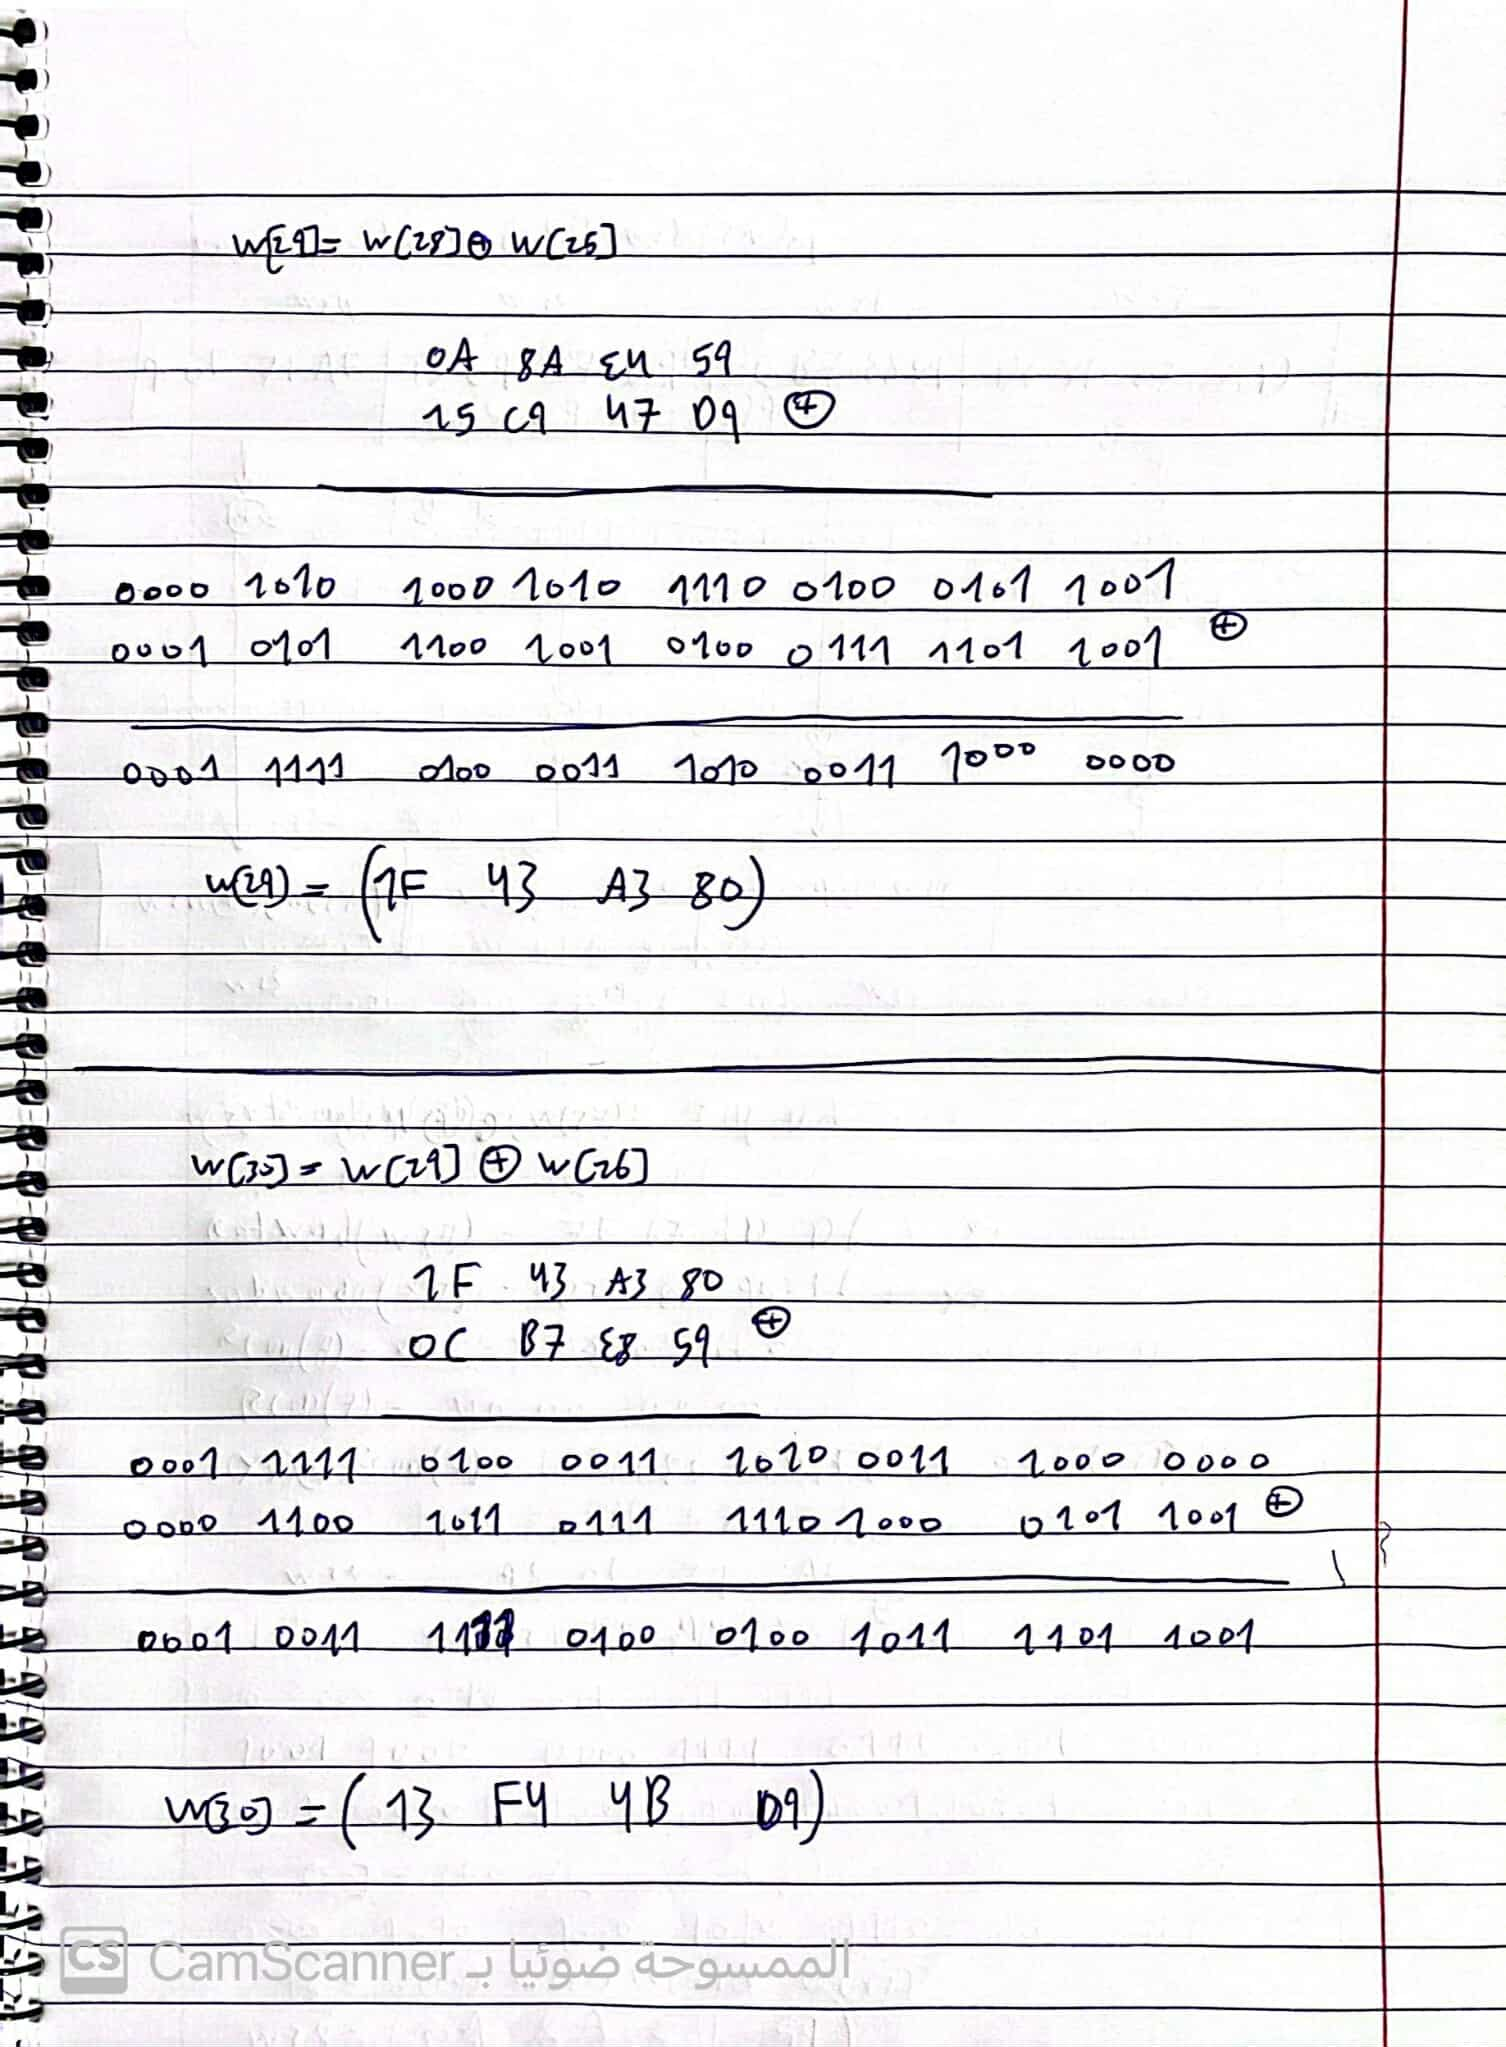 W[29]= W[28]⊕ W[25]
0A 8A E4 59
15 C9 47 D9 ⊕
0000 1010 1000 1010 1110 0100 0101 1001
0001 0101 1100 1001 0100 0111 1101 1001 ⊕
0001 1111 0100 0011 1010 0011 1000 0000
W[29] = (1F 43 A3 80)
W[30] = W[29] ⊕ W[26]
1F 43 A3 80
0C B7 E8 59 ⊕
0001 1111 0100 0011 1010 0011 1000 0000
0000 1100 1011 0111 1110 1000 0101 1001 ⊕
0001 0011 1111 0100 0100 1011 1101 1001
W[30] = ( 13 F4 4B D9)
CS CamScanner الممسوحة ضوئيا بـ